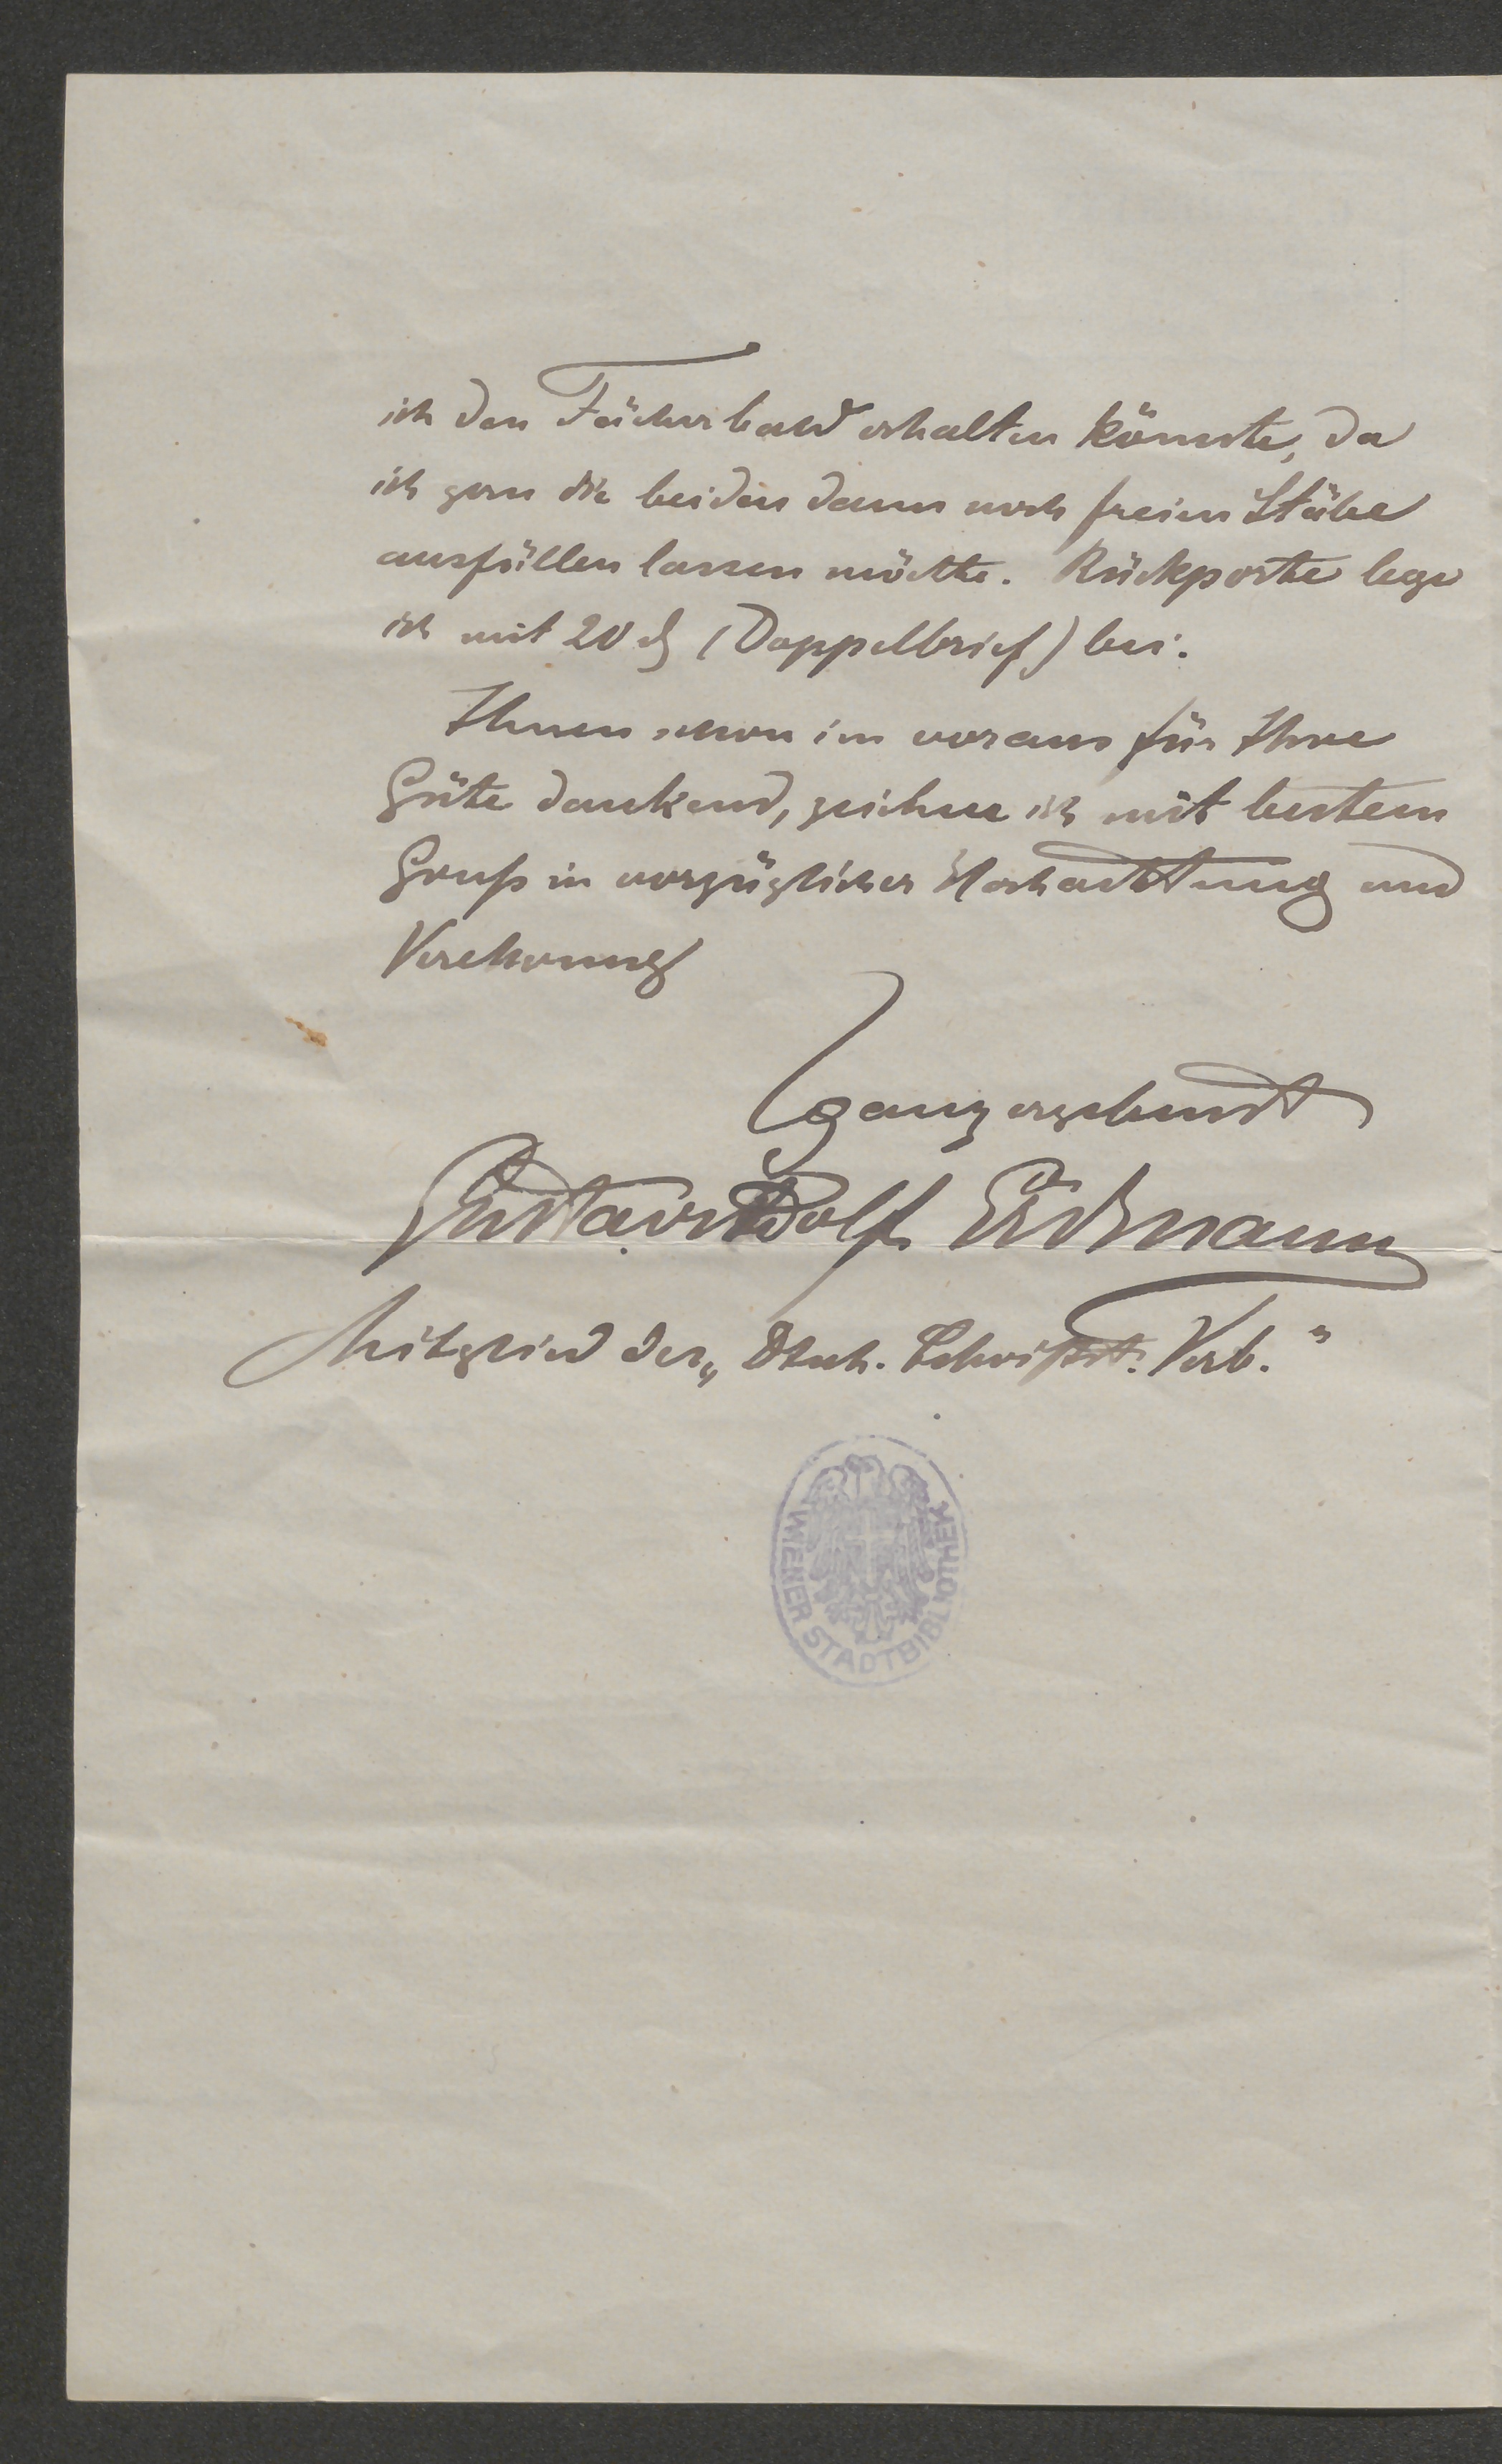 ich den Fächer bald erhalten könnte, da
ich gern die beiden dann noch freien Stäbe
ausfüllen lassen möchte. Rückporto lege
ich mit 20 ₰ (Doppelbrief) bei.
Ihnen schon im voraus für Ihre
Güte dankend, zeichne ich mit bestem
Gruß in vorzüglicher Hochachtung und
Verehrung
ganz ergebenst
Gustav Adolf Erdmann
Mitglied des „Dtsch. Schriftst. Verb."
WIENER STADTBIBLIOTHEK